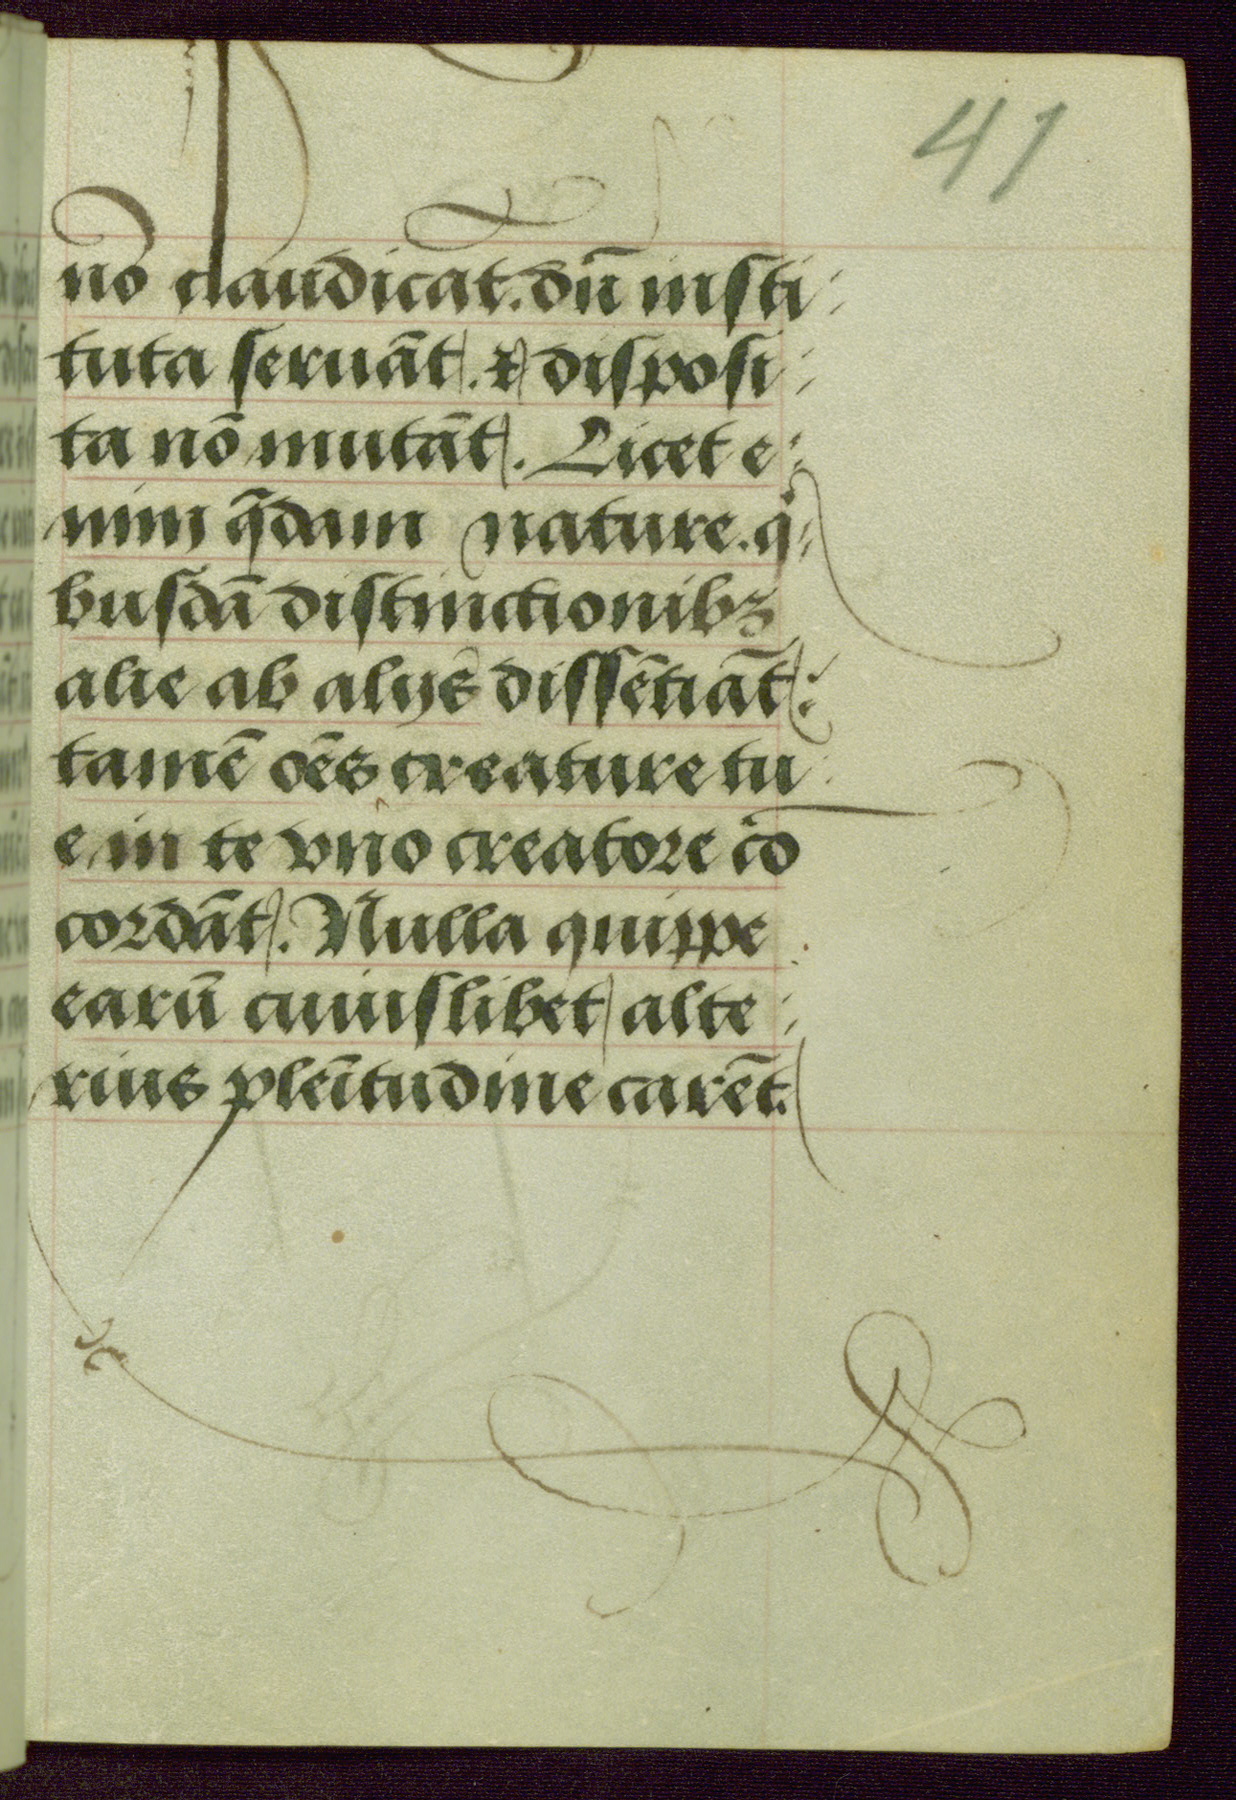 41
nō claudicāt. dū̄ insti-
tuta seruāt. & disposi-
ta nō mutāt. Licet e-
nim q̄dam nature. qͥ-
busdā distinctionibꝫ
alie ab alijs dissētiāt:
tamē oēs creature tu
e in te vno creatore cō
cordāt. Nulla quippe
earū cuiuslibet alte-
rius plēitudine carēt.